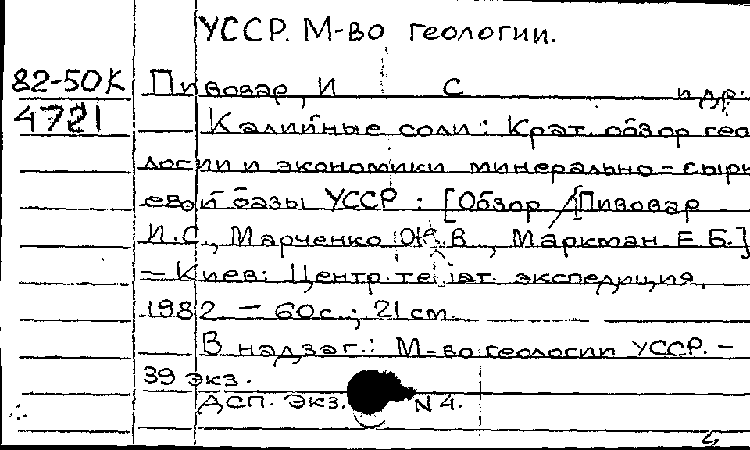 УССР. М-во геологии.
82-50К Пивовар, И С и др.
4721 Калийные соли : Крат. обзор гео
логии и экономики минерально-сырь
евой базы УССР : [Обзор / Пивовар
И.С., Марченко В., Маркман Е.Б.]
- Киев: Центр. экспедиция,
1982 - 60с.; 21см.
В надзаг.: М-во геологии УССР. -
39 экз.
ДСП. Экз. N 4.